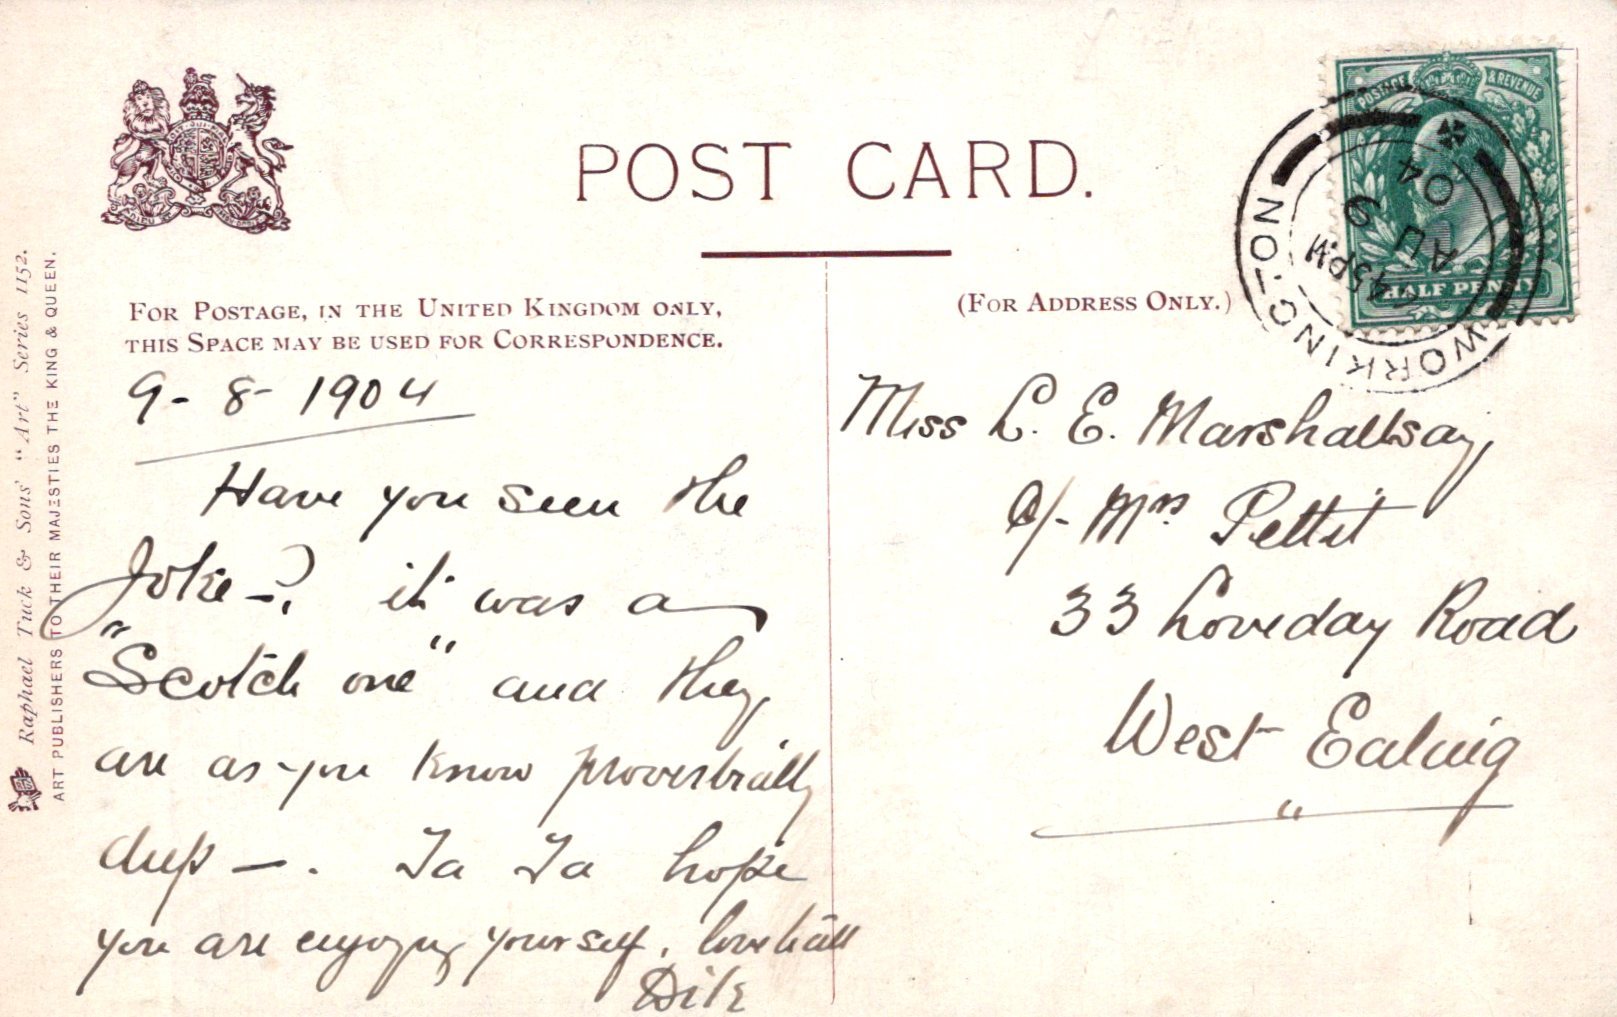 POST CARD.
FOR POSTAGE, IN THE UNITED KINGDOM ONLY,
THIS SPACE MAY BE USED FOR CORRESPONDENCE.
(FOR ADDRESS ONLY.)
POSTAGE & REVENUE
HALF PENNY
WORKINGTON
7.45PM
AU 9
04
Raphael Tuck & Sons' "Art" Series 1152.
ART PUBLISHERS TO THEIR MAJESTIES THE KING & QUEEN.
9-8-1904
Have you seen the
Joke-? it was a
"Scotch one" and they
are as you know proverbially
deep -. Ta Ta hope
you are enjoying yourself, love to all
Miss L. E. Marshallsay,
c/- Mrs Pettit
33 Loveday Road
West Ealing